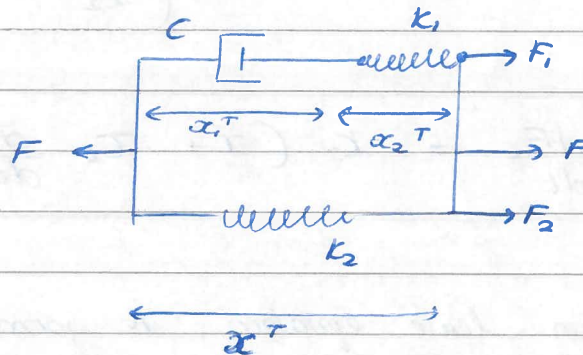 C K₁
F₁
x₁ᵀ x₂ᵀ
F F
F₂
K₂
xᵀ